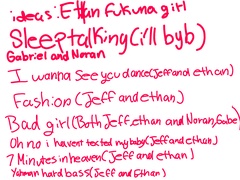 ideas: Ethan Fukuna girl
Sleeptalking(i'll byb)
Gabriel and Noran
I wanna see you dance(Jeff and ethan)
Fashion (Jeff and ethan)
Bad girl (Both Jeff, ethan and Noran, Gabe)
Oh no i havent texted my baby (Jeff and ethan)
7 Minutes in heaven (Jeff and ethan)
hard bass (Jeff and Ethan)